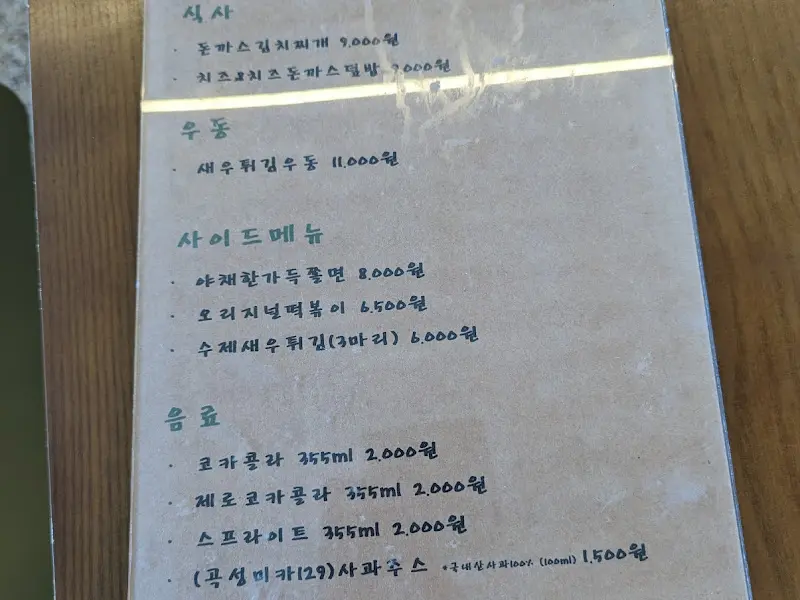 식사
· 돈까스김치찌개 9,000원
· 치즈&치즈돈까스덮밥 9,000원
우동
· 새우튀김우동 11,000원
사이드메뉴
· 야채한가득쫄면 8,000원
· 오리지널떡볶이 6,500원
· 수제새우튀김(3마리) 6,000원
음료
· 코카콜라 355ml 2,000원
· 제로코카콜라 355ml 2,000원
· 스프라이트 355ml 2,000원
· (곡성미카129)사과주스 *국내산사과100% (100ml) 1,500원